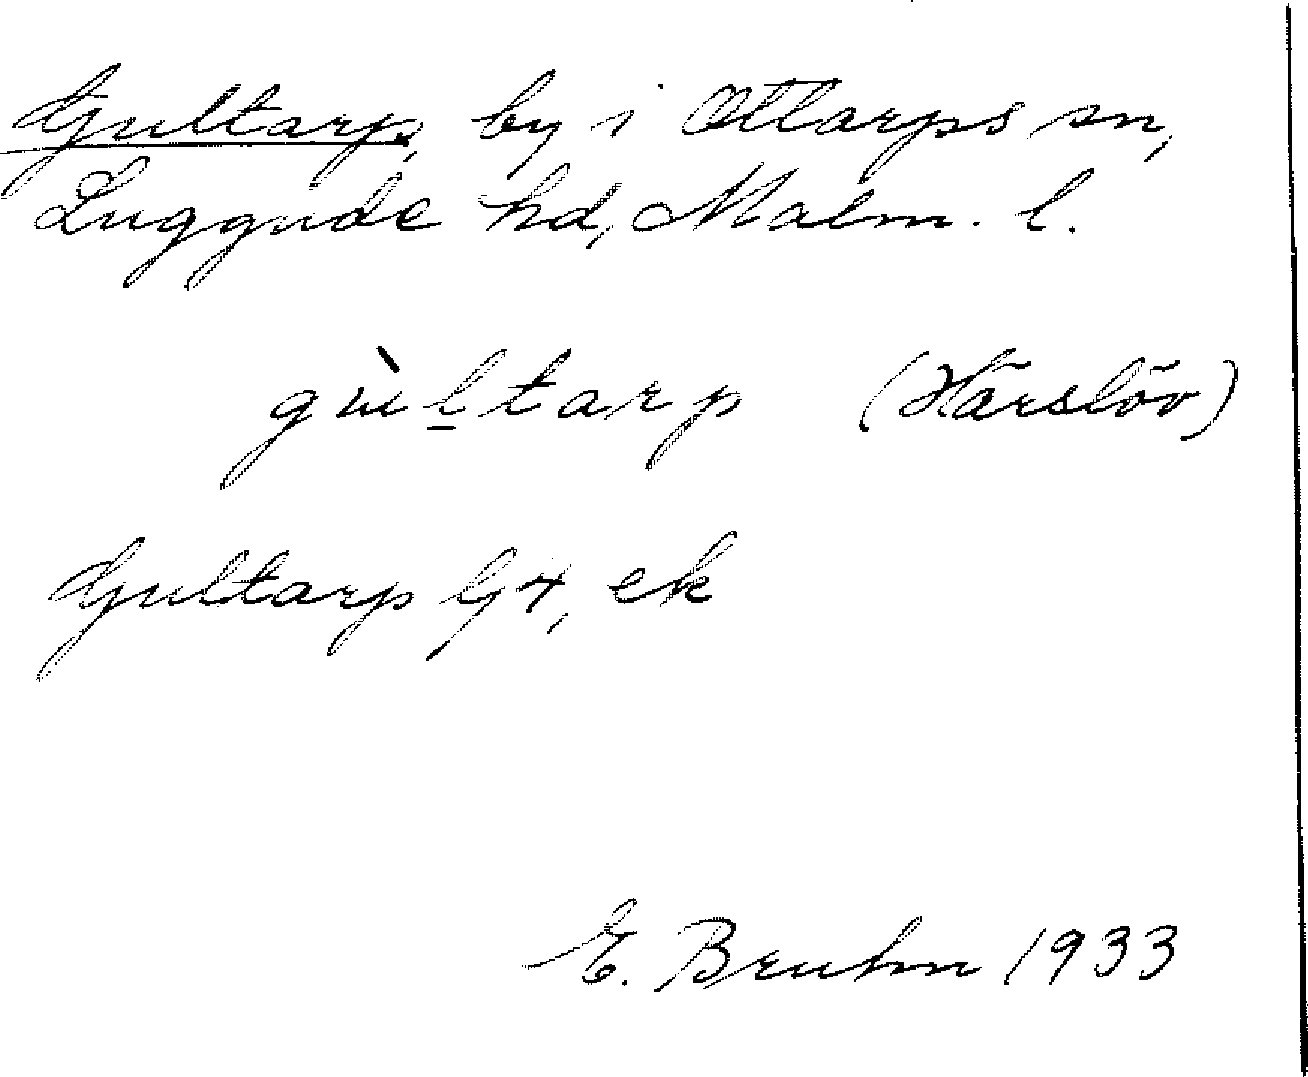 Gultarp, by i Ottarps sn,
Luggude hd, Malm. l.
gùḻtarp (Härslöv)
Gultarp Gx, ek
E. Bruhn 1933